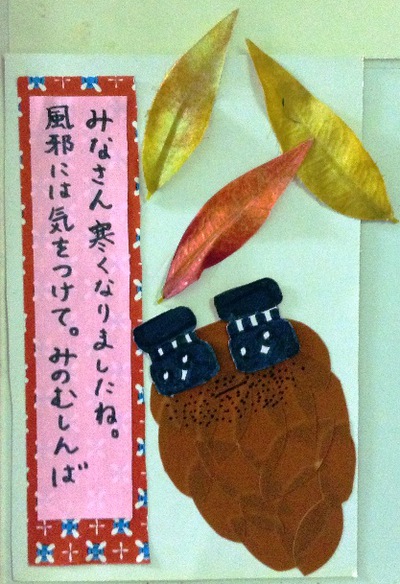 みなさん 寒くなりましたね。
風邪には気をつけて。みのむしんば